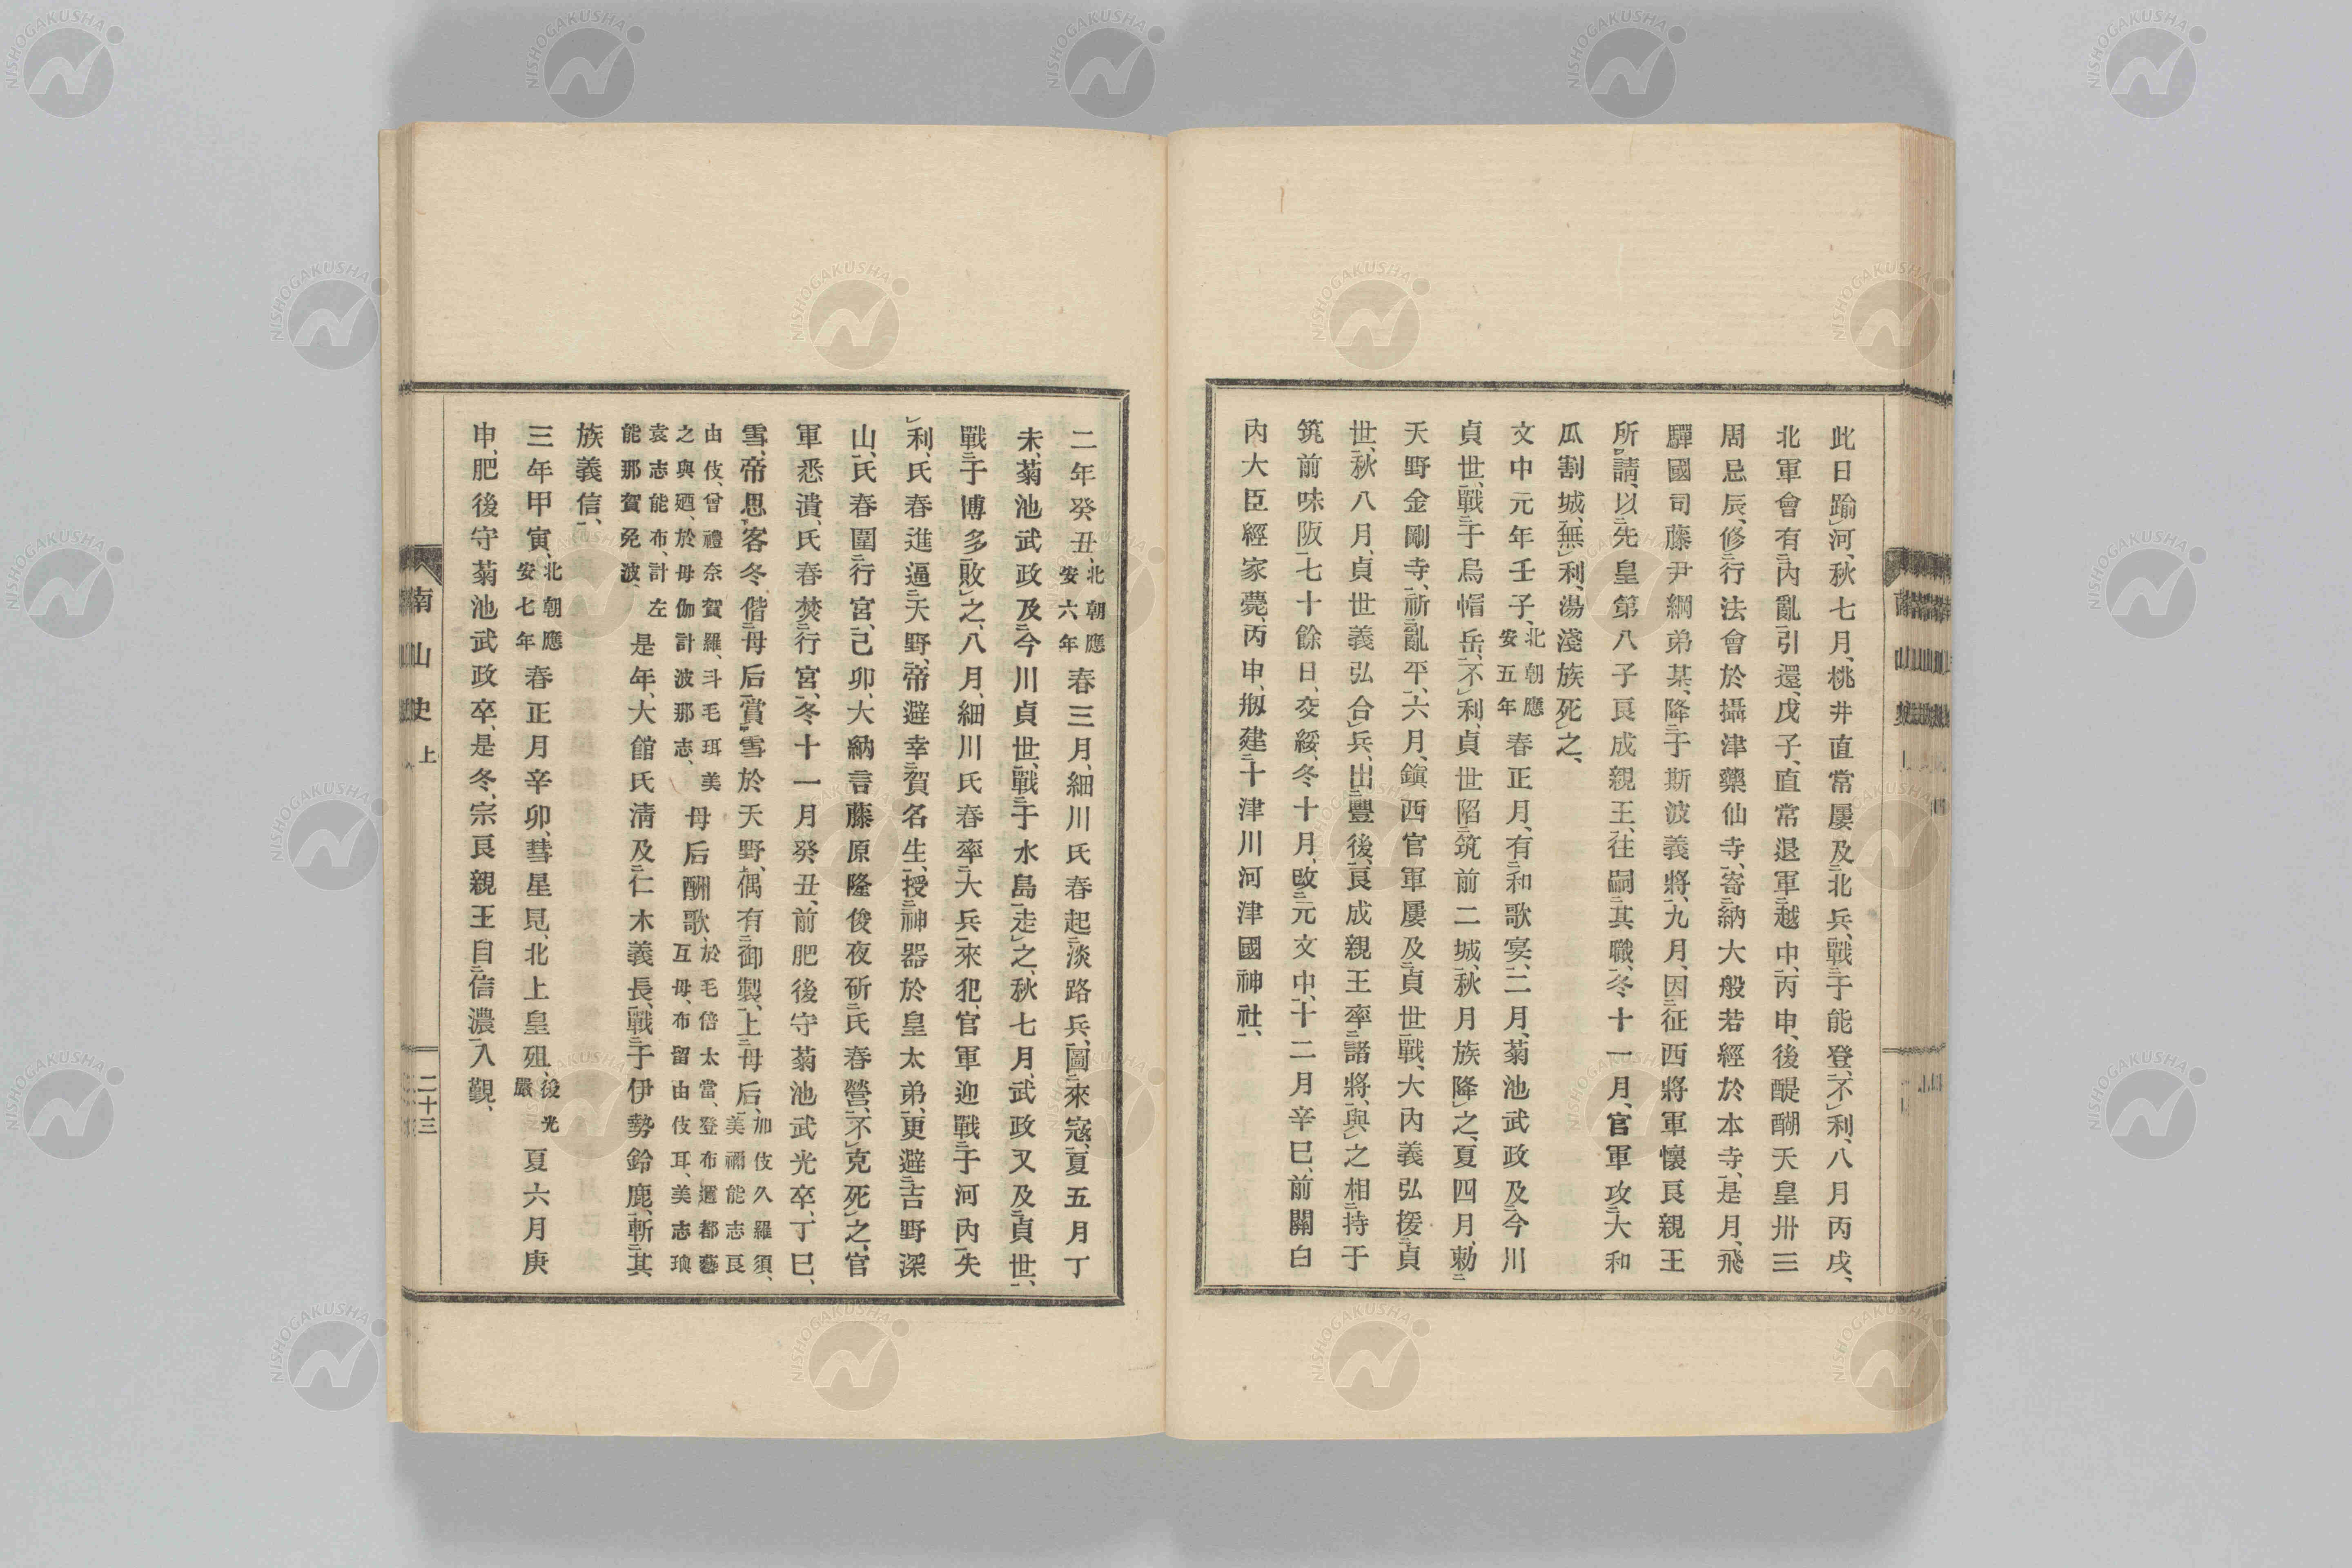 此日踰河、秋七月、桃井直常屢及北兵、戰于能登、不利、八月丙戌、
北軍會有內亂引還、戊子、直常退軍越中、丙申、後醍醐天皇卅三
周忌辰、修行法會於攝津藥仙寺、寄納大般若經於本寺、是月、飛
驒國司藤尹綱弟某、降于斯波義將、九月、因征西將軍懷良親王
所請、以先皇第八子良成親王、往嗣其職、冬十一月、官軍攻大和
瓜割城、無利、湯淺族死之、
文中元年壬子、北朝應安五年春正月、有和歌宴、二月、菊池武政及今川
貞世、戰于烏帽岳、不利、貞世陷筑前二城、秋月族降之、夏四月、勅
天野金剛寺、祈亂平、六月、鎭西官軍屢及貞世戰、大內義弘援貞
世、秋八月、貞世義弘合兵、出豐後、良成親王率諸將、與之相持于
筑前味阪、七十餘日、交綏、冬十月、改元文中、十二月辛巳、前關白
內大臣經家薨、丙申、剏建十津川河津國神社、
二年癸丑、北朝應安六年春三月、細川氏春起淡路兵、圖來寇、夏五月丁
未、菊池武政及今川貞世、戰于水島、走之、秋七月、武政又及貞世、
戰于博多、敗之、八月、細川氏春率大兵來犯、官軍迎戰于河內、失
利、氏春進逼天野、帝避幸賀名生、授神器於皇太弟、更避吉野深
山、氏春圍行宮、己卯、大納言藤原隆俊夜斫氏春營、不克死之、官
軍悉潰、氏春焚行宮、冬十一月癸丑、前肥後守菊池武光卒、丁巳、
雪、帝思客冬偕母后賞雪於天野、偶有御製、上母后、加伎久羅須、美禰能志良
由伎、曾禮奈賀羅、斗毛珥美之與廼、於母伽計波那志、母后酬歌、於毛倍太當、登布邇都藝互母、布留由伎耳、美志瑛
袁志能布、計左能那賀免波、是年、大館氏淸及仁木義長、戰于伊勢鈴鹿、斬其
族義信、
三年甲寅、北朝應安七年春正月辛卯、彗星見、北上皇殂、後光嚴夏六月庚
申、肥後守菊池武政卒、是冬、宗良親王自信濃入覲、
南山史 上
二十三